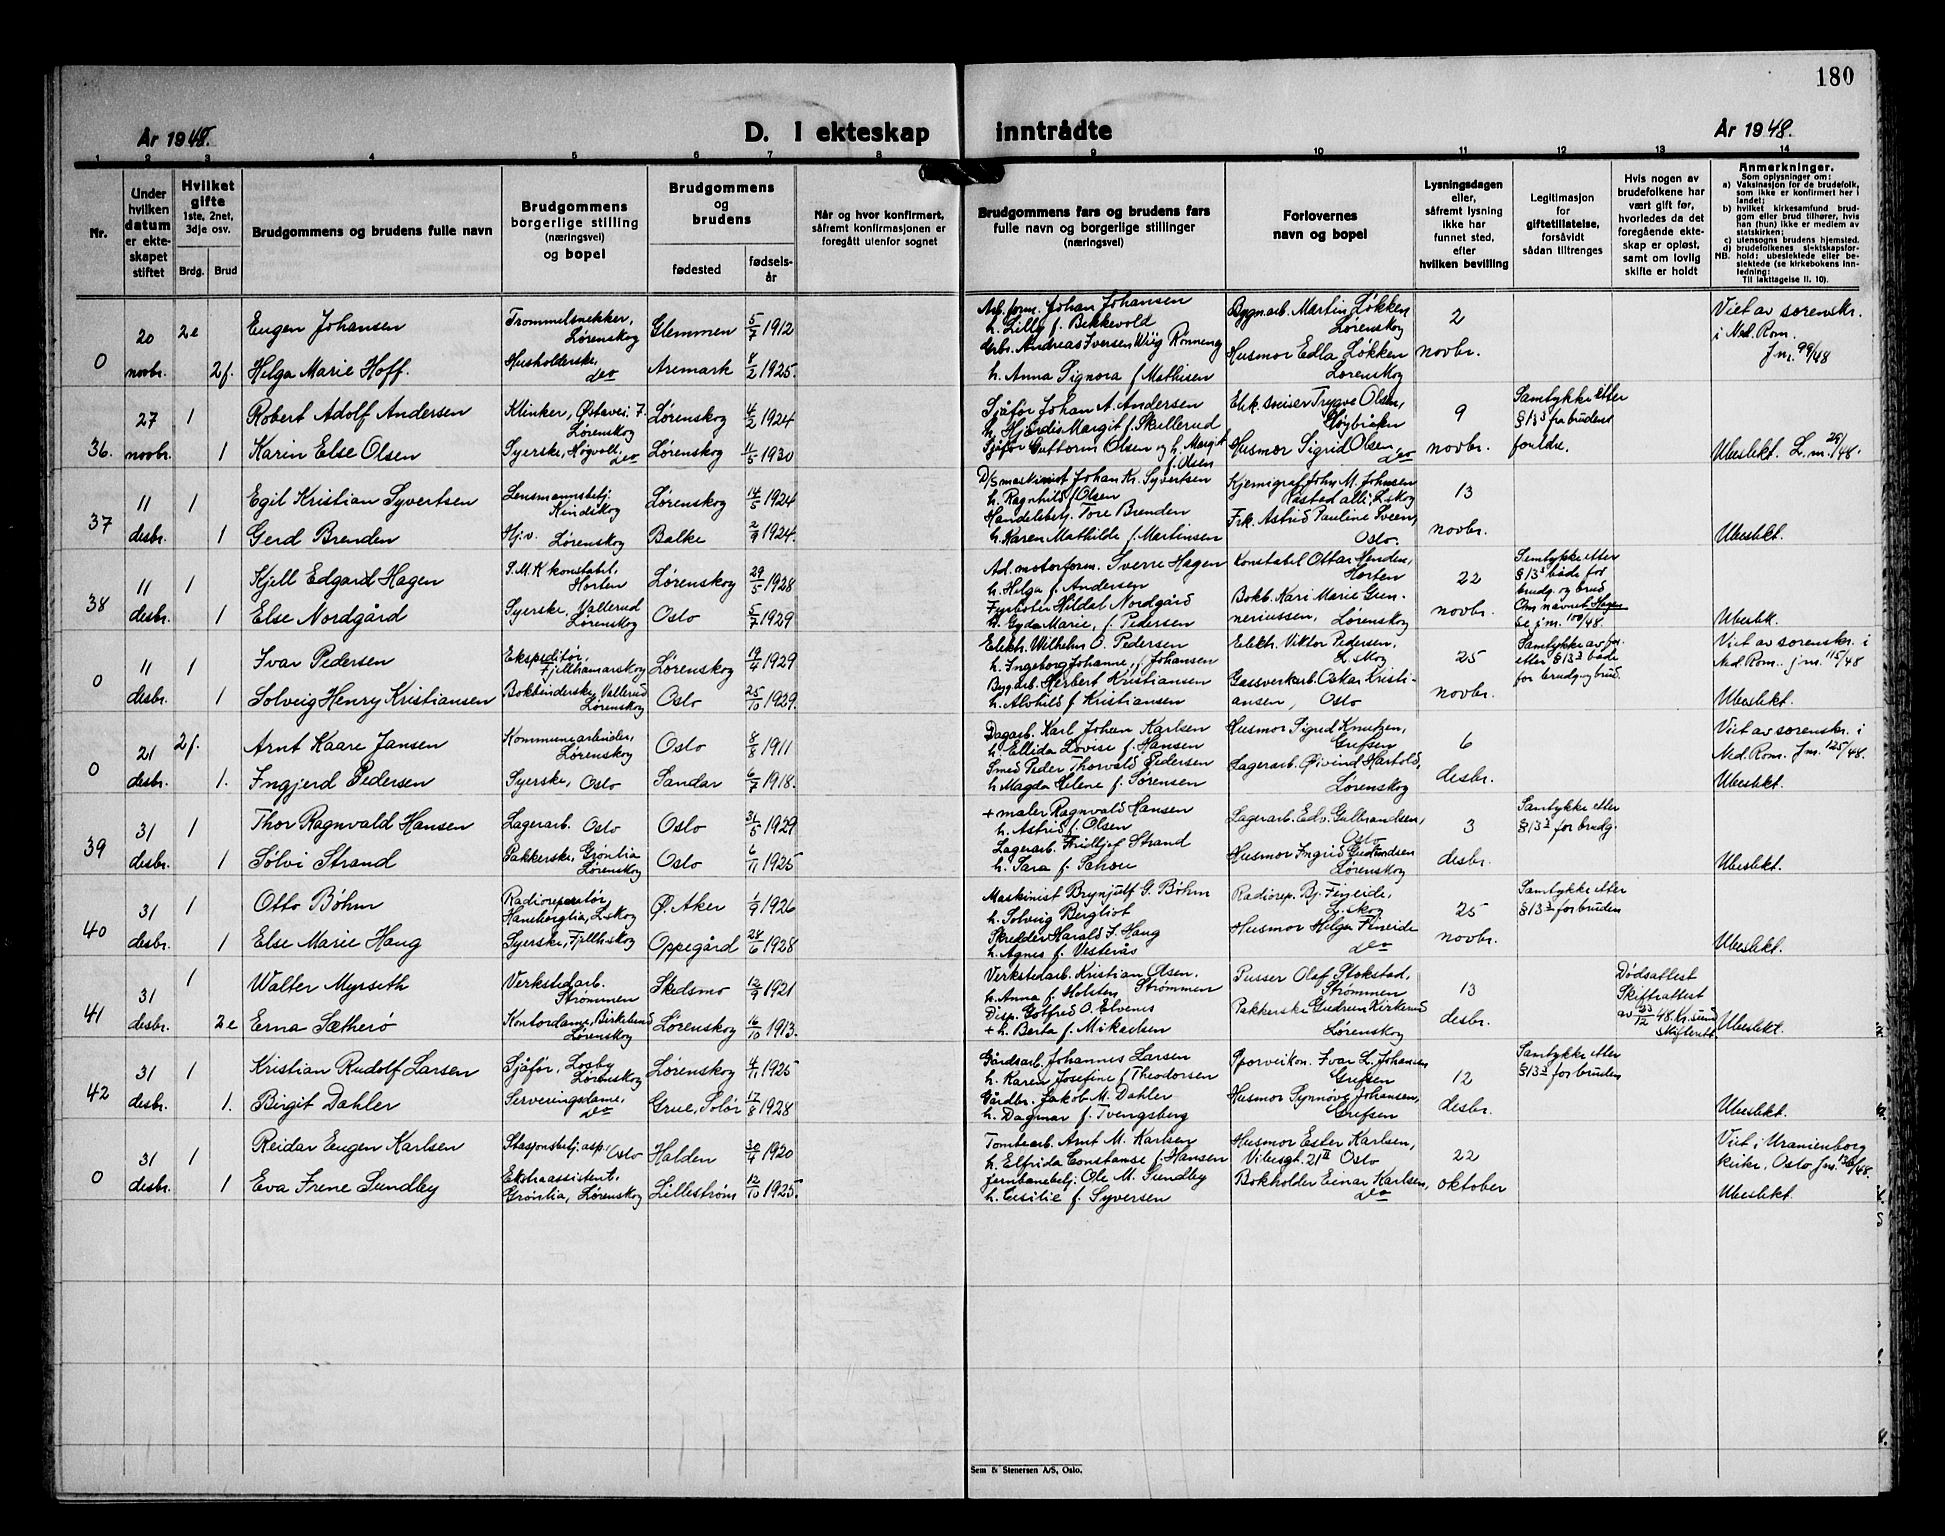 180
År 1948.
D. I ekteskap inntrådte
År 1948.
1 2 3 4 5 6 7 8 9 10 11 12 13 14
Nr.
Under hvilken datum er ekteskapet stiftet
Hvilket gifte 1ste, 2net, 3dje osv.
Brdg. Brud
Brudgommens og brudens fulle navn
Brudgommens borgerlige stilling (næringsvei) og bopel
Brudgommens og brudens
fødested
fødselsår
Når og hvor konfirmert, såfremt konfirmasjonen er foregått utenfor sognet
Brudgommens fars og brudens fars fulle navn og borgerlige stillinger (næringsvei)
Forlovernes navn og bopel
Lysningsdagen eller, såfremt lysning ikke har funnet sted, efter hvilken bevilling
Legitimasjon for giftetillatelse, forsåvidt sådan tiltrenges
Hvis nogen av brudefolkene har vært gift før, hvorledes da det foregående ekteskap er opløst, samt om lovlig skifte er holdt
Anmerkninger.
Som oplysninger om:
a) Vaksinasjon for de brudefolk, som ikke er konfirmert her i landet;
b) hvilket kirkesamfund brudgom eller brud tilhører, hvis han (hun) ikke er medlem av statskirken;
c) utensogns brudens hjemsted.
d) brudefolkenes slektskapsforhold: ubeslektede eller beslektede (se kirkebokens innledning;
NB.
Til iakttagelse ll. 10).
0
20 novbr.
2e
Eugen Johansen
Trommelsnekker, Lørenskog
Glemmen
5/7 1912
Arb.form. Johan Johansen
h. Lilly f. Bekkevold
Bygn.arb. Martin Løkken, Lørenskog
2 novbr.
Viet av sorenskr. i Ned. Rom. Jnr. 99/48
2f.
Helga Marie Hoff.
Husholderske, do
Aremark
8/2 1925.
Grbr. Andreas Iversen Wiig Rönneng
h. Anna Signora f. Mathisen
Husmor Edla Løkken Lørenskog
36.
27 novbr.
1
Robert Adolf Andersen
Klinker, Østavei 7. Lørenskog
Lørenskog
4/2 1924
Sjåfør Johan A. Andersen
h. Hjørdis Margit f. Skillerud
Elek. sveiser Trygve Olsen, Høybråten
9 novbr.
Samtykke etter §13³ fra brudens foreldre.
1
Karin Else Olsen
Syerske, Høgvoll, do
Lørenskog
4/5 1930
Sjåfør Guttorm Olsen og h. Margit f. Olsen
Husmor Sigrid Olsen do
Ubeslekt. L.nr. 29/48.
37
11 desbr.
1
Egil Kristian Syvertsen
Lensmannsbetj. Kindskog
Lørenskog
14/5 1924
D/S maskinist Johan Kr. Syvertsen
h. Ragnhild f. Olsen
Kjemigraf John M. Johnsen Råstad allé, L.skog
13 novbr.
1
Gerd Brenden
Hjv. Lørenskog
Balke
2/9 1924.
Handelsbetj. Tore Brenden
h. Karen Mathilde f. Martinsen
Frk. Astrid Pauline Sveen, Oslo.
Ubeslekt.
38
11 desbr.
1
Kjell Edgard Hagen
S.M.K konstabel, Horten
Lørenskog
29/5 1928
Ad. motorform. Sverre Hagen
h. Helga f. Andersen
Konstabel Ottar Henden, Horten
22 novbr.
Samtykke etter §13³ både for brudg. og brud
Om navnet Hagen se jnr. 100/48.
1
Else Nordgård
Syerske, Vallerud Lørenskog
Oslo
5/7 1929
Fyrbøter Hildal Nordgård
h. Gyda Marie, f. Pedersen
Bokb. Kari Marie Gunneriussen, Lørenskog
Ubeslk.
0
11 desbr.
1
Ivar Pedersen
Ekspeditør, Fjellhamarskog
Lørenskog
19/4 1929
Elektr. Wilhelm O. Pedersen
h. Ingeborg Johanne, f. Johansen
Elektr. Viktor Pedersen, L.skog
25 novbr.
Samtykke av for. etter §13³ både for brudg og brud.
Viet av sorenskr. i Ned. Rom. jnr. 115/48
1
Solveig Henry Kristiansen
Bokbinderske, Vallerud Lørenskog
Oslo
25/10 1929.
Bygarb. Herbert Kristiansen
h. Alvhild f. Kristiansen
Gassverkarb. Oskar Kristiansen, Oslo
Ubeslekt.
0
21 desbr.
2f.
Arnt Kaare Jansen
Kommunearbeider, Lørenskog
Oslo
8/8 1911
Dagarb. Karl Johan Karlsen
h. Ellida Lovise f. Hansen
Husmor Sigrid Knutzen, Grefsen
6 desbr.
Viet av sorenskr. i Ned. Rom. Jnr. 125/48.
1.
Ingjerd Pedersen
Syerske, Oslo
Sandar
6/7 1918.
Smed Peder Thorvald Pedersen
h. Magda Helene f. Sørensen
Lagerarb. Øivind Hartold, Lørenskog
Ubeslekt.
39
31 desbr.
1
Thor Ragnvald Hansen
Lagerarb. Oslo
Oslo
31/5 1929
+ maler Ragnvald Hansen
h. Astrid f. Olsen
Lagerarb. Edv. Gulbrandsen, Oslo
3 desbr.
Samtykke etter §13³ for brudg.
1
Sølvi Strand
Pakkerske, Grønlia Lørenskog
Oslo
6/11 1925
Lagerarb. Fridtjof Strand
h. Sara f. Sahou
Husmor Ingrid Gulbrandsen Lørenskog
Ubeslekt.
40
31 desbr.
1
Otto Böhm
Radioreparatør, Haneborglia, L.skog
Ø. Aker
1/9 1926
Maskinist Brynjulf G. Böhm
h. Solveig Bergliot
Radiorep. Bj. Fineide, L.skog
25 novbr.
Samtykke etter §13³ for bruden
1
Else Marie Haug
Syerske, Fjellh.skog
Oppegård
28/6 1928
Skredder Harald S. Haug
h. Agnes f. Vesterås
Husmor Helga Fineide do
Ubeslekt.
41
31 desbr.
1
Walter Myrseth
Verkstedarb. Strømmen
Skedsmo
12/9 1921
Verkstedarb. Kristian Olsen, Strømmen
h. Anna f. Holsten
Pusser Olaf Stokstad, Strømmen
13 desbr.
Dødsattest Skifteattest av 23/12 48. Kr.sund skifterett.
2e
Erna Sætherø
Kontordame, Birkelund Lørenskog
Lørenskog
16/10 1913.
Disp. Gotfred O. Elvenes
+ h. Berta f. Mikaelsen
Pakkerske Gudrun Kirkerud Lørenskog
Ubeslekt.
42
31 desbr.
1
Kristian Rudolf Larsen
Sjåfør, Losby Lørenskog
Lørenskog
4/11 1925
Gårdsarb. Johannes Larsen
h. Karen Josefine f. Theodorsen
Sporveikon. Ivar L. Johansen Grefsen
12 desbr.
Samtykke etter §13³ for bruden
1.
Birgit Dahler
Serveringsdame, do
Grue, Solør
17/8 1928
Gårdbr. Jakob M. Dahler
h. Dagmar f. Tvengsberg
Husmor Synnøve Johansen, Grefsen
Ubeslekt.
0
31 desbr.
1
Reidar Eugen Karlsen
Stasjonsbetj. asp. Oslo
Halden
30/4 1920
Tomtearb. Arnt M. Karlsen
h. Elfrida Constanse f. Hansen
Husmor Ester Karlsen, Vibesgt. 21 II Oslo
22 oktober
Viet i Uranienborg kirke, Oslo, Jnr. 126/48.
1
Eva Irene Sundby
Ekstraassistent, Grønlia, Lørenskog
Lillestrøm
12/10 1925.
Jernbanebetj. Ole M. Sundby
h. Cesilie f. Syversen
Bokholder Einar Karlsen, do
Ubeslekt.
Sem & Stenersen A/S, Oslo.